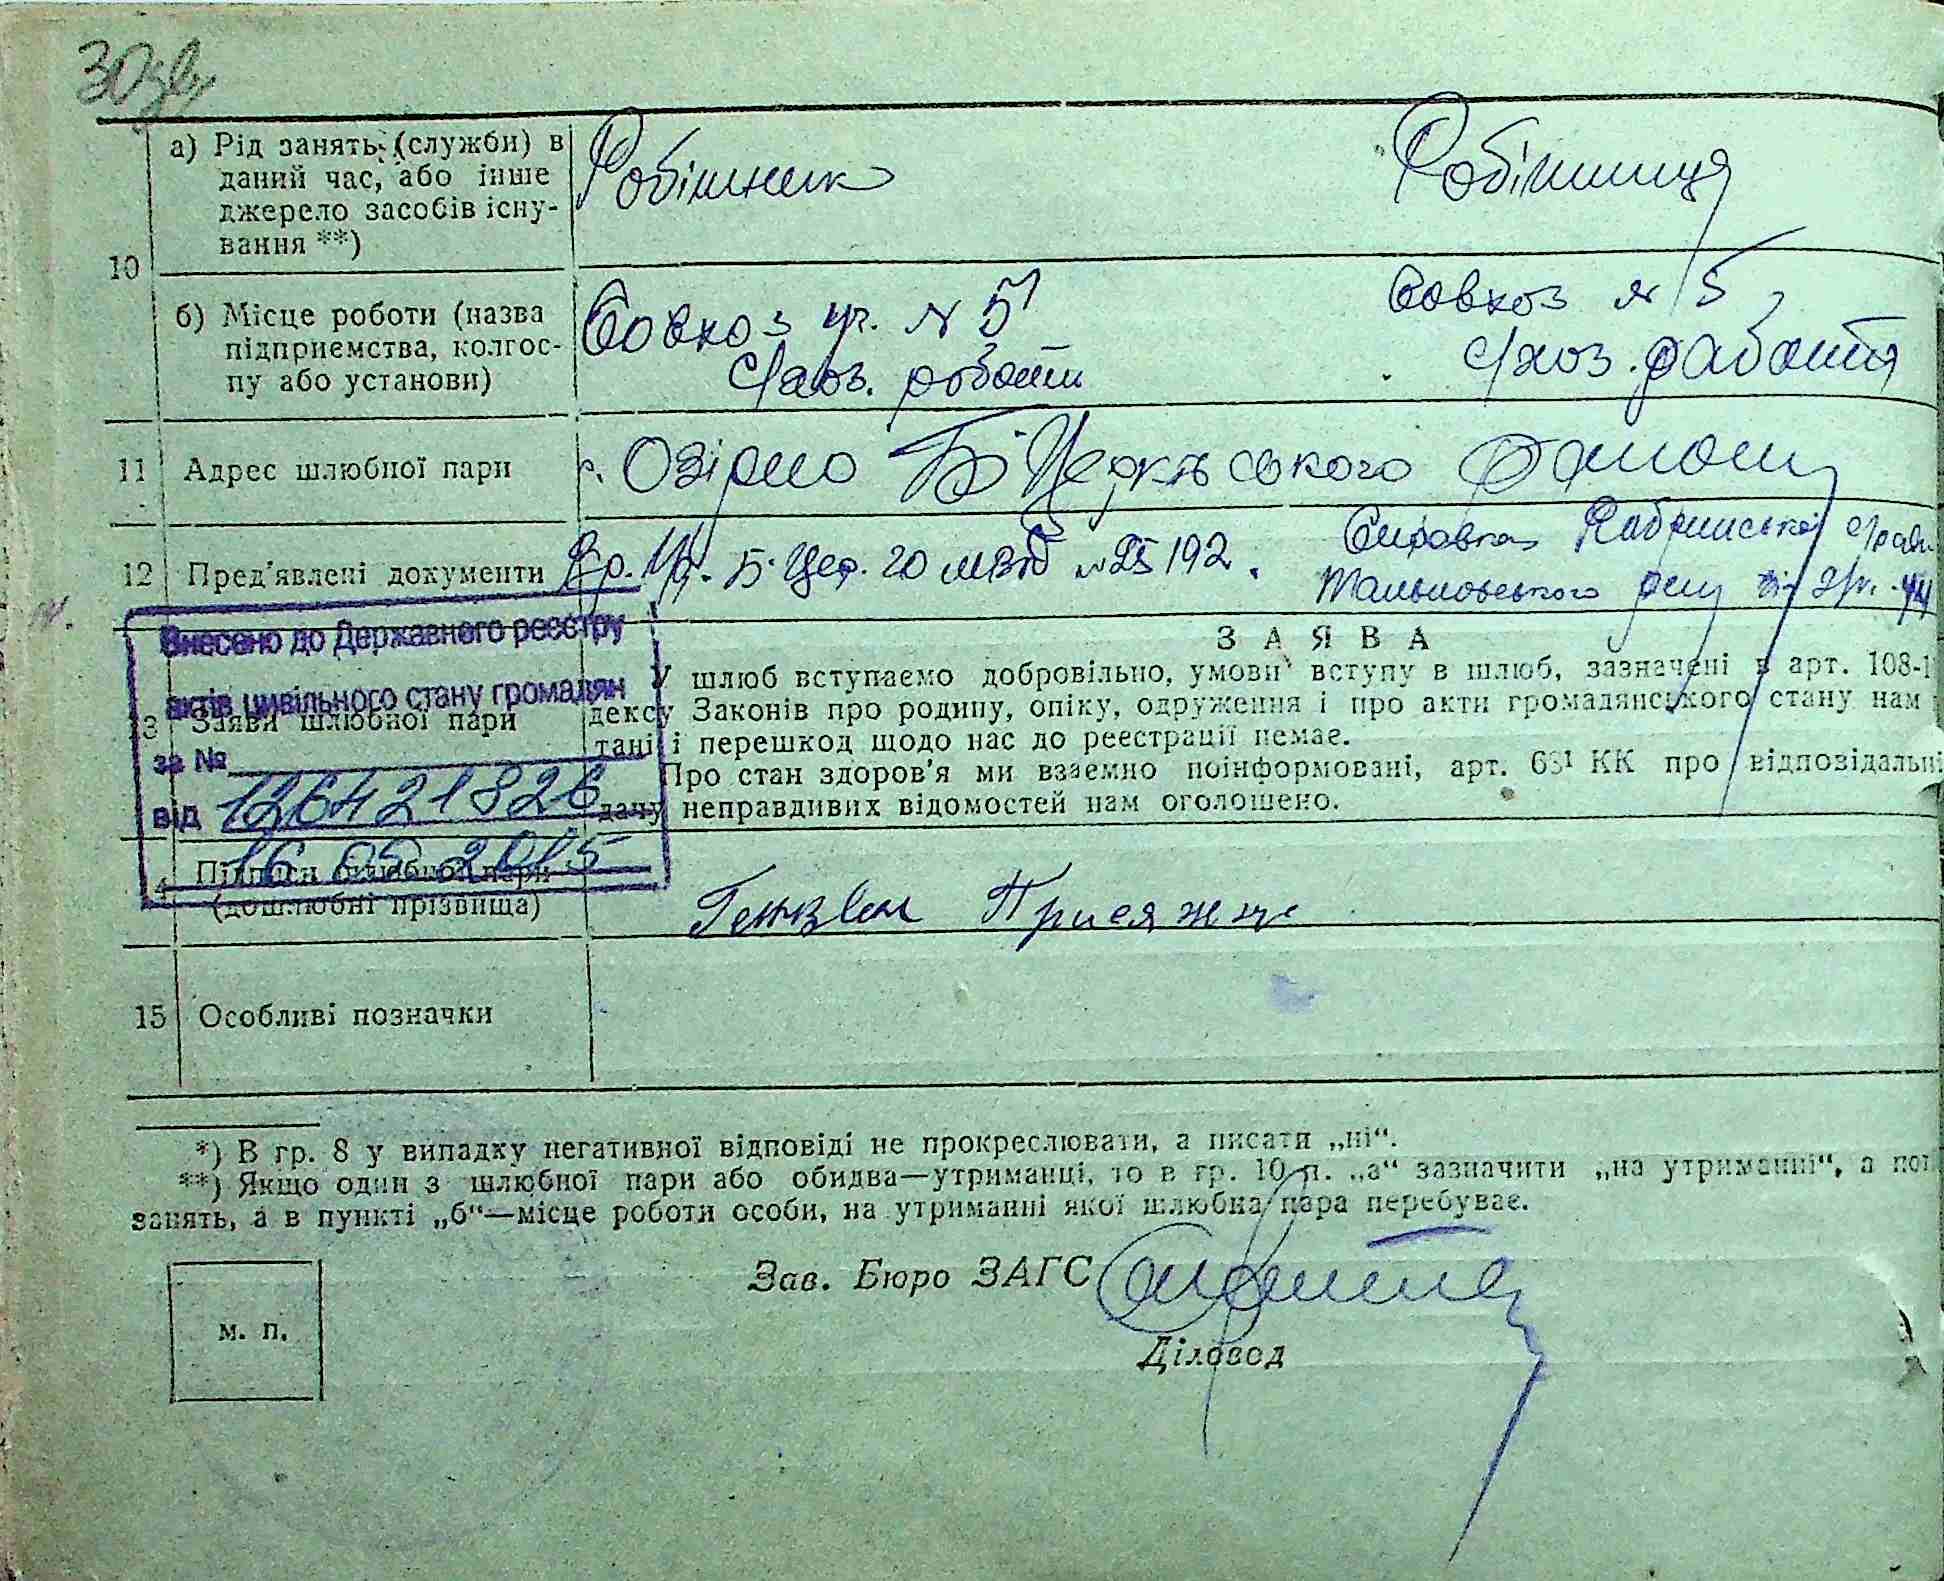 30зв
а) Рід занять (служби) в
даний час, або інше
джерело засобів існу-
вання **)
Робітник
Робітниця
10
б) Місце роботи (назва
підприємства, колгос-
пу або установи)
Совхоз № 5
с/хоз. роботи
Совхоз № 5,
с/хоз. работа
11 Адрес шлюбної пари
с. Озірно Б Церківського району
12 Пред'явлені документи
Б. Цер. № 192.
Справка с/ради
Тальновського
Внесено до Державного реєстру
актів цивільного стану громадян
за №
126421826
від
16 05 2015
13 Заяви шлюбної пари
ЗАЯВА
У шлюб вступаємо добровільно, умови вступу в шлюб, зазначені в арт. 108-1
дексу Законів про родину, опіку, одруження і про акти громадянського стану нам
тані і перешкод щодо нас до реєстрації немає.
Про стан здоров'я ми взаємно поінформовані, арт. 63¹ КК про відповідальн
дачу неправдивих відомостей нам оголошено.
14 Підписи шлюбної пари
(дошлюбні прізвища)
Присяжн
15 Особливі позначки
*) В гр. 8 у випадку негативної відповіді не прокреслювати, а писати „ні“.
**) Якщо один з шлюбної пари або обидва—утриманці, то в гр. 10 п. „а“ зазначити „на утриманні“, а пот
занять, а в пункті „б“—місце роботи особи, на утриманні якої шлюбна пара перебуває.
Зав. Бюро ЗАГС
Діловод
м. п.